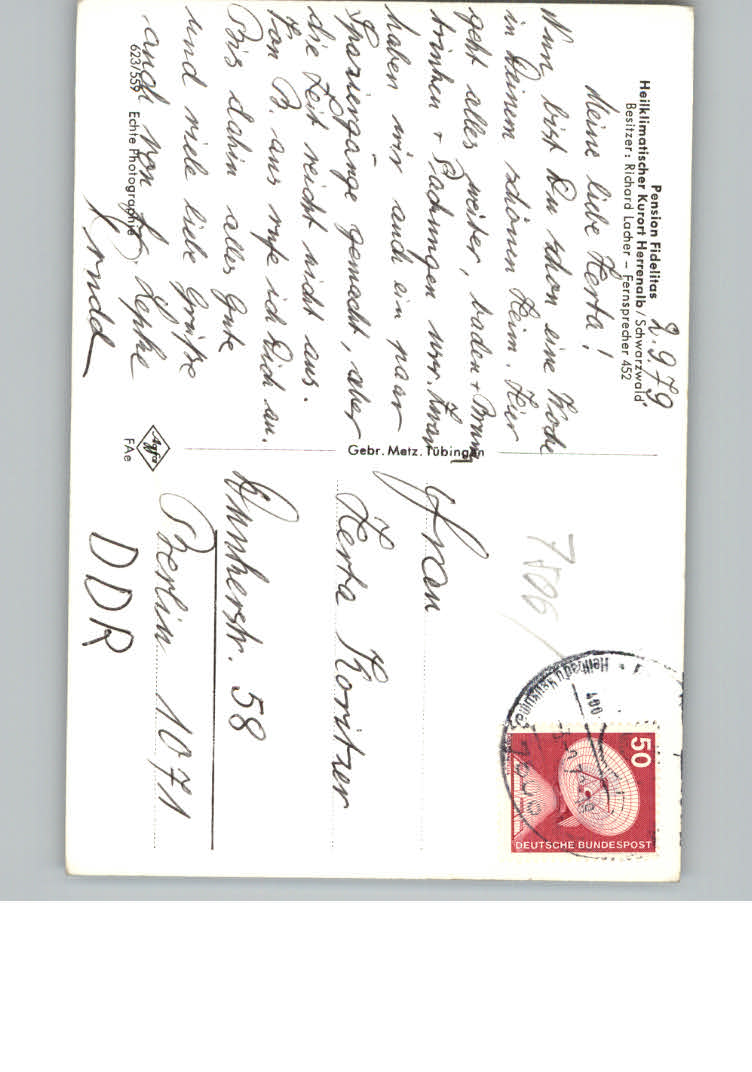 Pension Fidelitas
Heilklimatischer Kurort Herrenalb / Schwarzwald
Besitzer: Richard Lacher – Fernsprecher 452
2.9.79
Meine liebe Herta!
Nun bist Du schon eine Woche
in Deinem schönen Heim. Hier
geht alles weiter, baden + Brunn
trinken + Packungen usw. Zwar
haben wir auch ein paar
Spaziergänge gemacht, aber
die Zeit reicht nicht aus.
Von B. aus rufe ich Dich an.
Bis dahin alles Gute
und viele liebe Grüße
auch von
623/559 Echte Photographie
Gebr. Metz, Tübingen
Agfa
FAe
7506/
50
DEUTSCHE BUNDESPOST
Frau
Herta Koritzer
Dunkerstr. 58
Berlin 1071
DDR